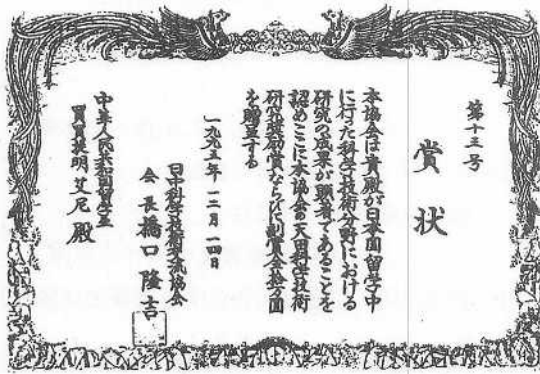 第十三号
賞状
本協会は貴殿が日本国留学中
に行った科学技術分野における
研究の成果が顕著であることを
認めここに本協会の天田科学技術
研究奨励賞ならびに副賞金拾万円
を贈呈する
一九九五年一二月一四日
日中科学技術交流協会
会長 橋口隆吉
中華人民共和国留学生
買買提明艾尼殿